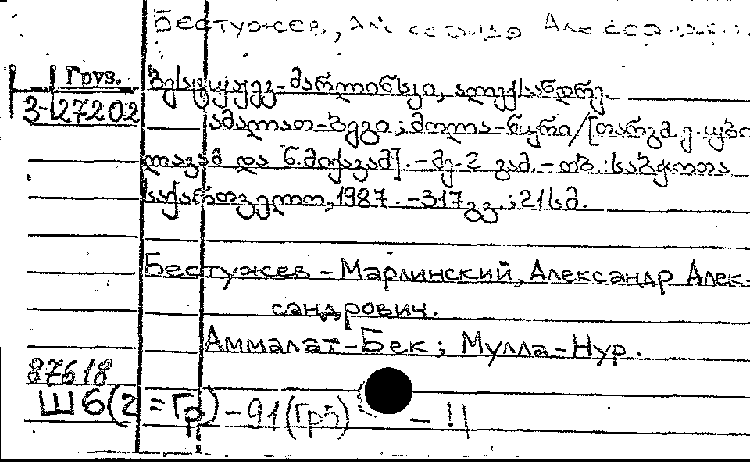 Бестужев, Александр Алексан.
Груз. ბესტუჟევ-მარლინსკი, ალექსანდრე.
3-27202
ამალათ-ბეგი ; მოლა-ნური / [თარგმ. ე. ყიფ
და ნ. მიქავამ]. – მე-2 გამ. – თბ. : საბჭოთა
საქართველო, 1987. – 317 გვ. ; 21 სმ.
Бестужев – Марлинский, Александр Алек-
сандрович.
Аммалат-Бек ; Мулла-Нур.
87618
Ш6(2=Гр) – 91(Грз) – 11